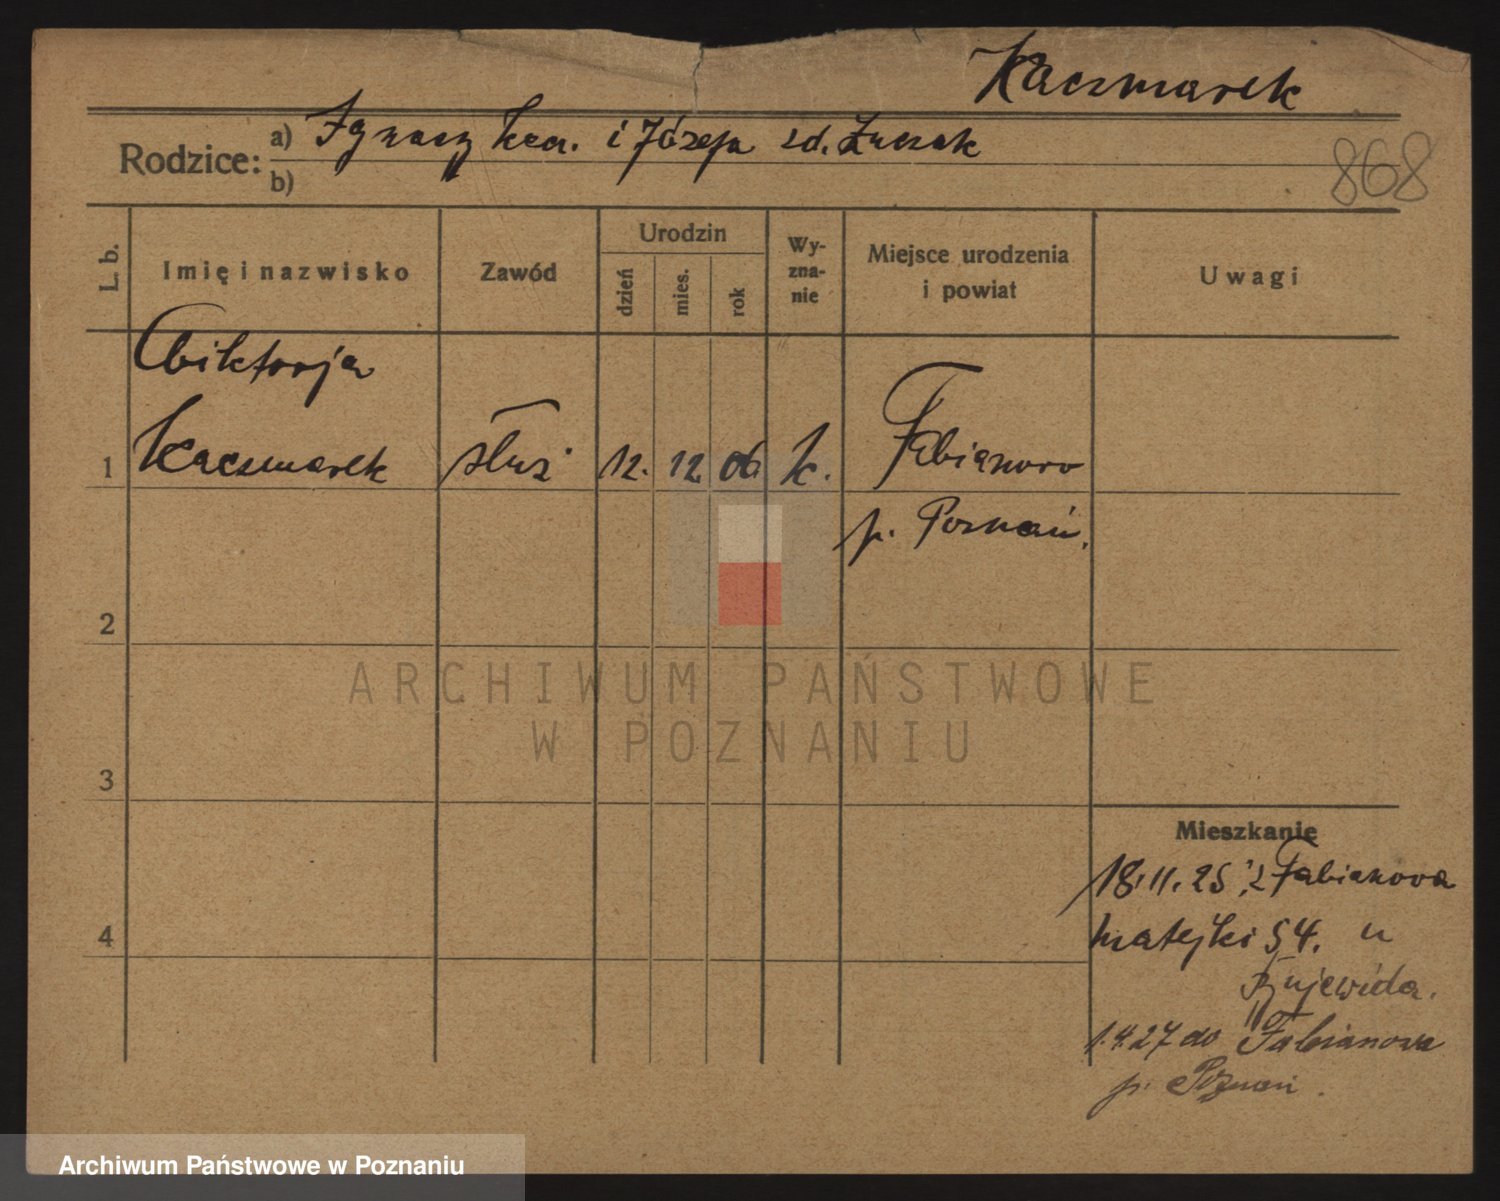 Kaczmarek
Rodzice: a) Ignacy Kacz. i Józefa zd.
b)
868
L. b.
Imię i nazwisko
Zawód
Urodzin
dzień
mies.
rok
Wy-
zna-
nie
Miejsce urodzenia
i powiat
Uwagi
Wiktorja
1 Kaczmarek służ. 12. 12 06 k. Fabianowo
p. Poznań.
2
3
4
ARCHIWUM PAŃSTWOWE
W POZNANIU
Mieszkanie
18.11.25 z Fabianowa
Matejki 54. u
1.4.27 do Fabianowa
p. Poznań.
Archiwum Państwowe w Poznaniu